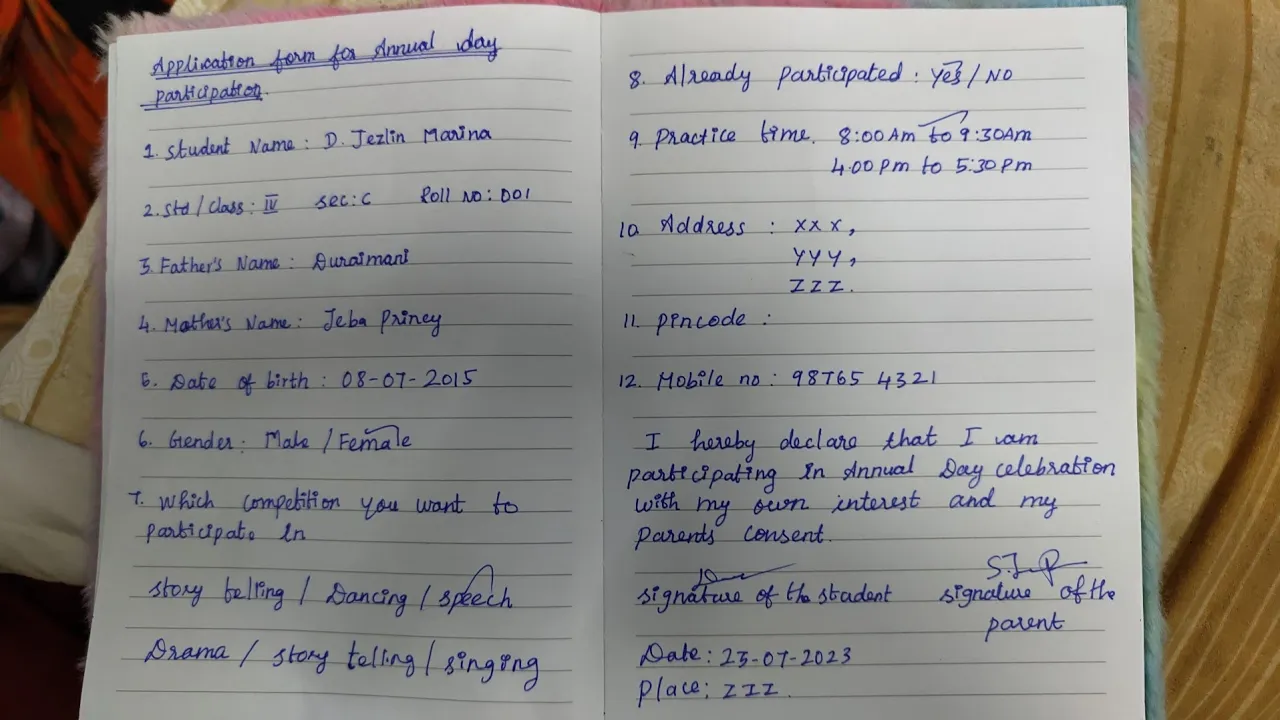 Application form for Annual day
participation.
1. Student Name : D. Jezlin Marina
2. Std / Class : IV sec : C Roll NO : 001
3. Father's Name : Duraimani
4. Mother's Name : Jeba Princy
5. Date of birth : 08-07-2015
6. Gender : Male / Female
7. Which competition you want to
participate in
story telling / Dancing / speech
Drama / story telling / singing
8. Already participated : Yes / NO
9. Practice time. 8:00 Am to 9:30 Am
4.00 Pm to 5:30 Pm
10 Address : x x x,
y y y,
z z z.
11. Pincode :
12. Mobile no : 98765 4321
I hereby declare that I am
participating in Annual Day celebration
with my own interest and my
Parents consent.
S.J.P
signature of the student signature of the
parent
Date : 25-07-2023
Place : ZZZ.